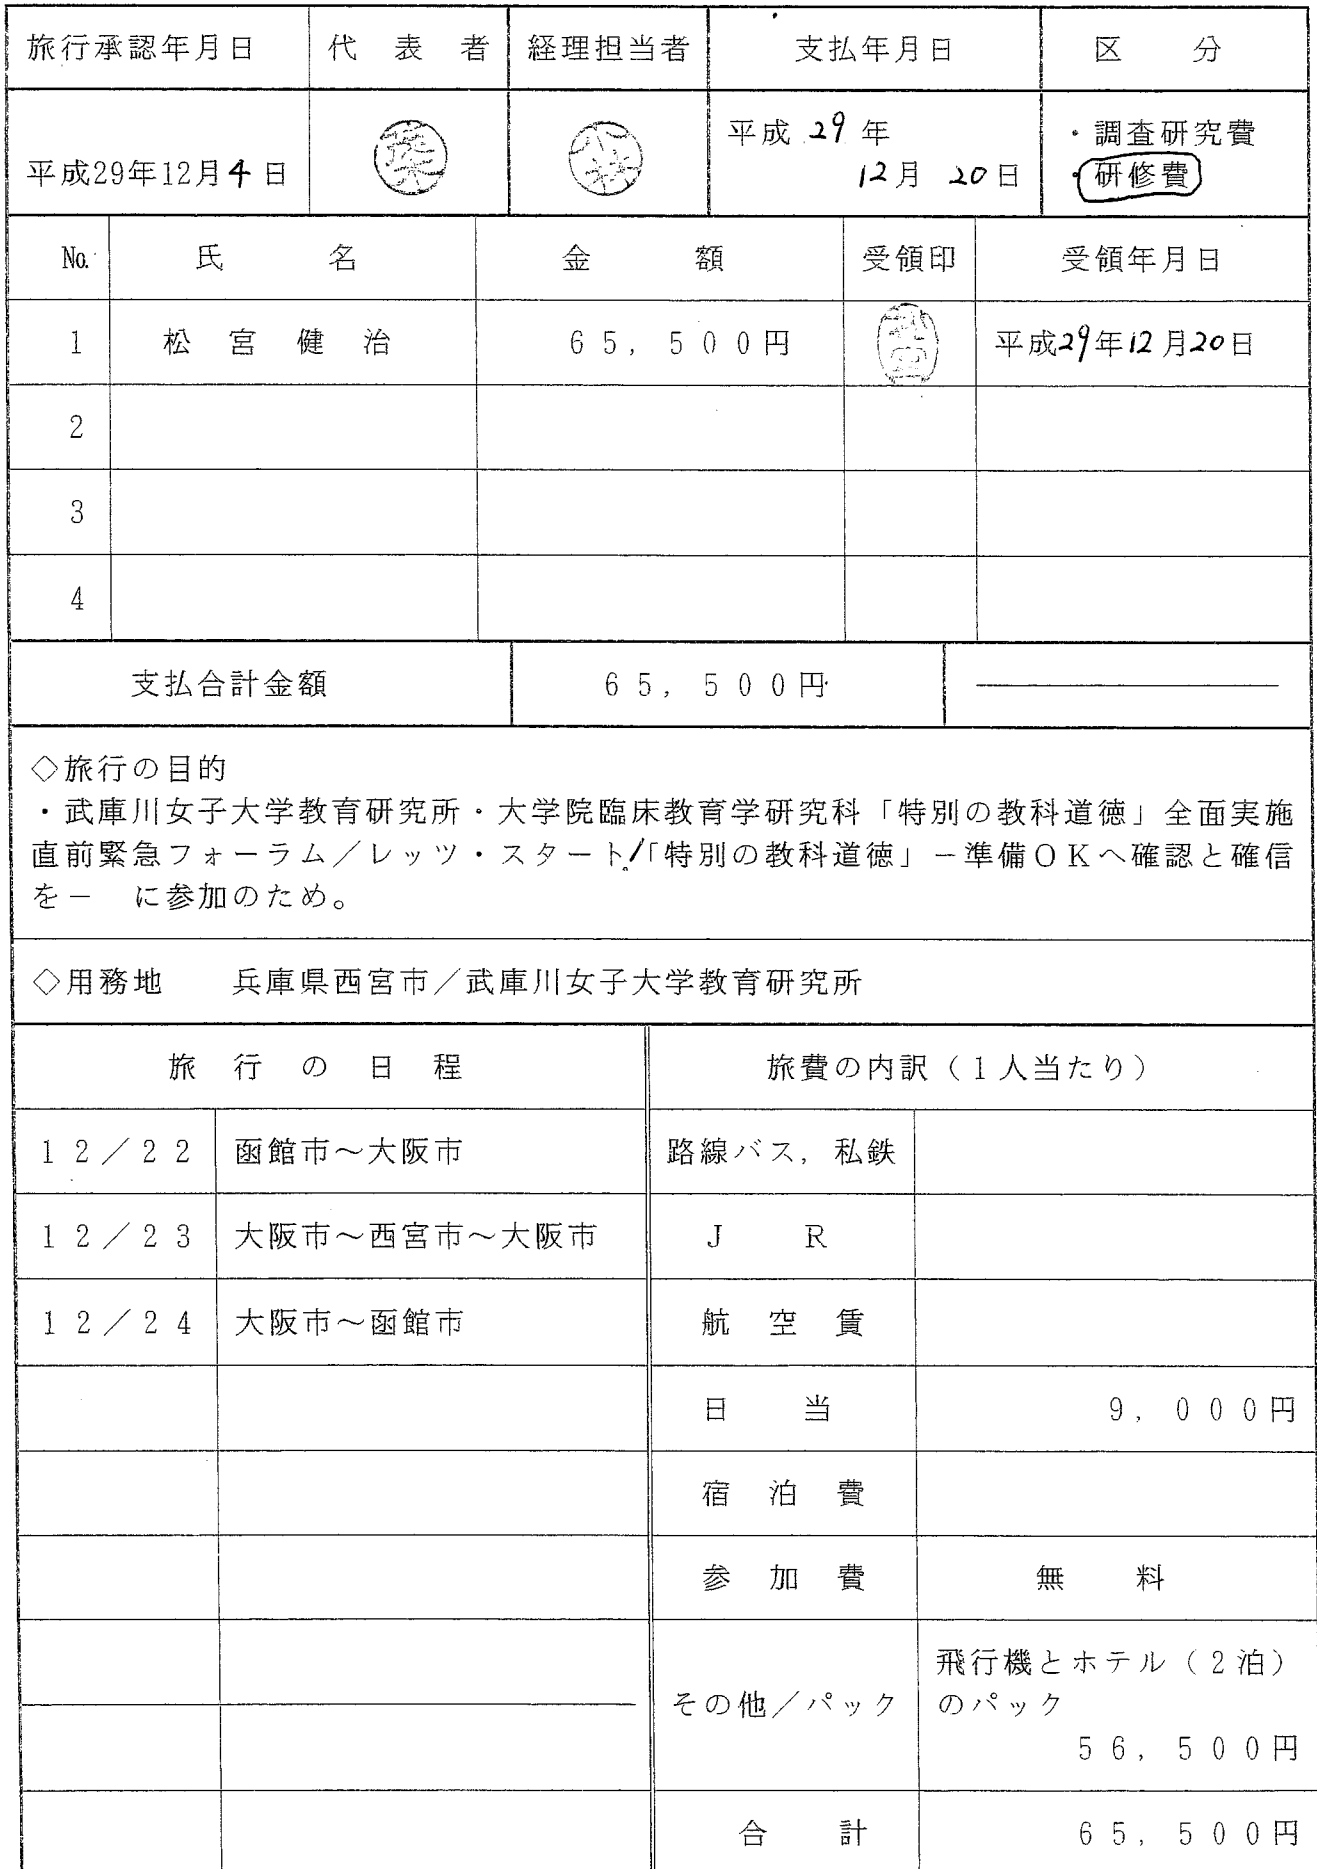 旅行承認年月日 代表者 経理担当者 支払年月日 区分
平成29年12月4日 平成29年 ・調査研究費
12月20日 ・研修費
No. 氏名 金額 受領印 受領年月日
1 松宮健治 65,500円 松宮 平成29年12月20日
2
3
4
支払合計金額 65,500円
◇旅行の目的
・武庫川女子大学教育研究所・大学院臨床教育学研究科「特別の教科道徳」全面実施
直前緊急フォーラム/レッツ・スタート/「特別の教科道徳」-準備OKへ確認と確信
を- に参加のため。
◇用務地 兵庫県西宮市/武庫川女子大学教育研究所
旅行の日程 旅費の内訳(1人当たり)
12/22 函館市~大阪市 路線バス,私鉄
12/23 大阪市~西宮市~大阪市 JR
12/24 大阪市~函館市 航空賃
日当 9,000円
宿泊費
参加費 無料
その他/パック 飛行機とホテル(2泊)
のパック
56,500円
合計 65,500円